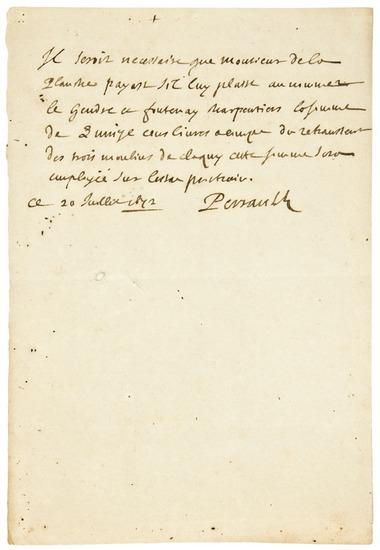 Il seroit necessaire que monsieur de la
Planche payast s'il luy plaist au nommez
le Gendre et fontenay charpentiers la somme
de cens livres acompte du restraussement
des trois moulins de clagny cette somme sera
employée sur l'estat prochain.
ce 20 Juillet 1672 Perrault